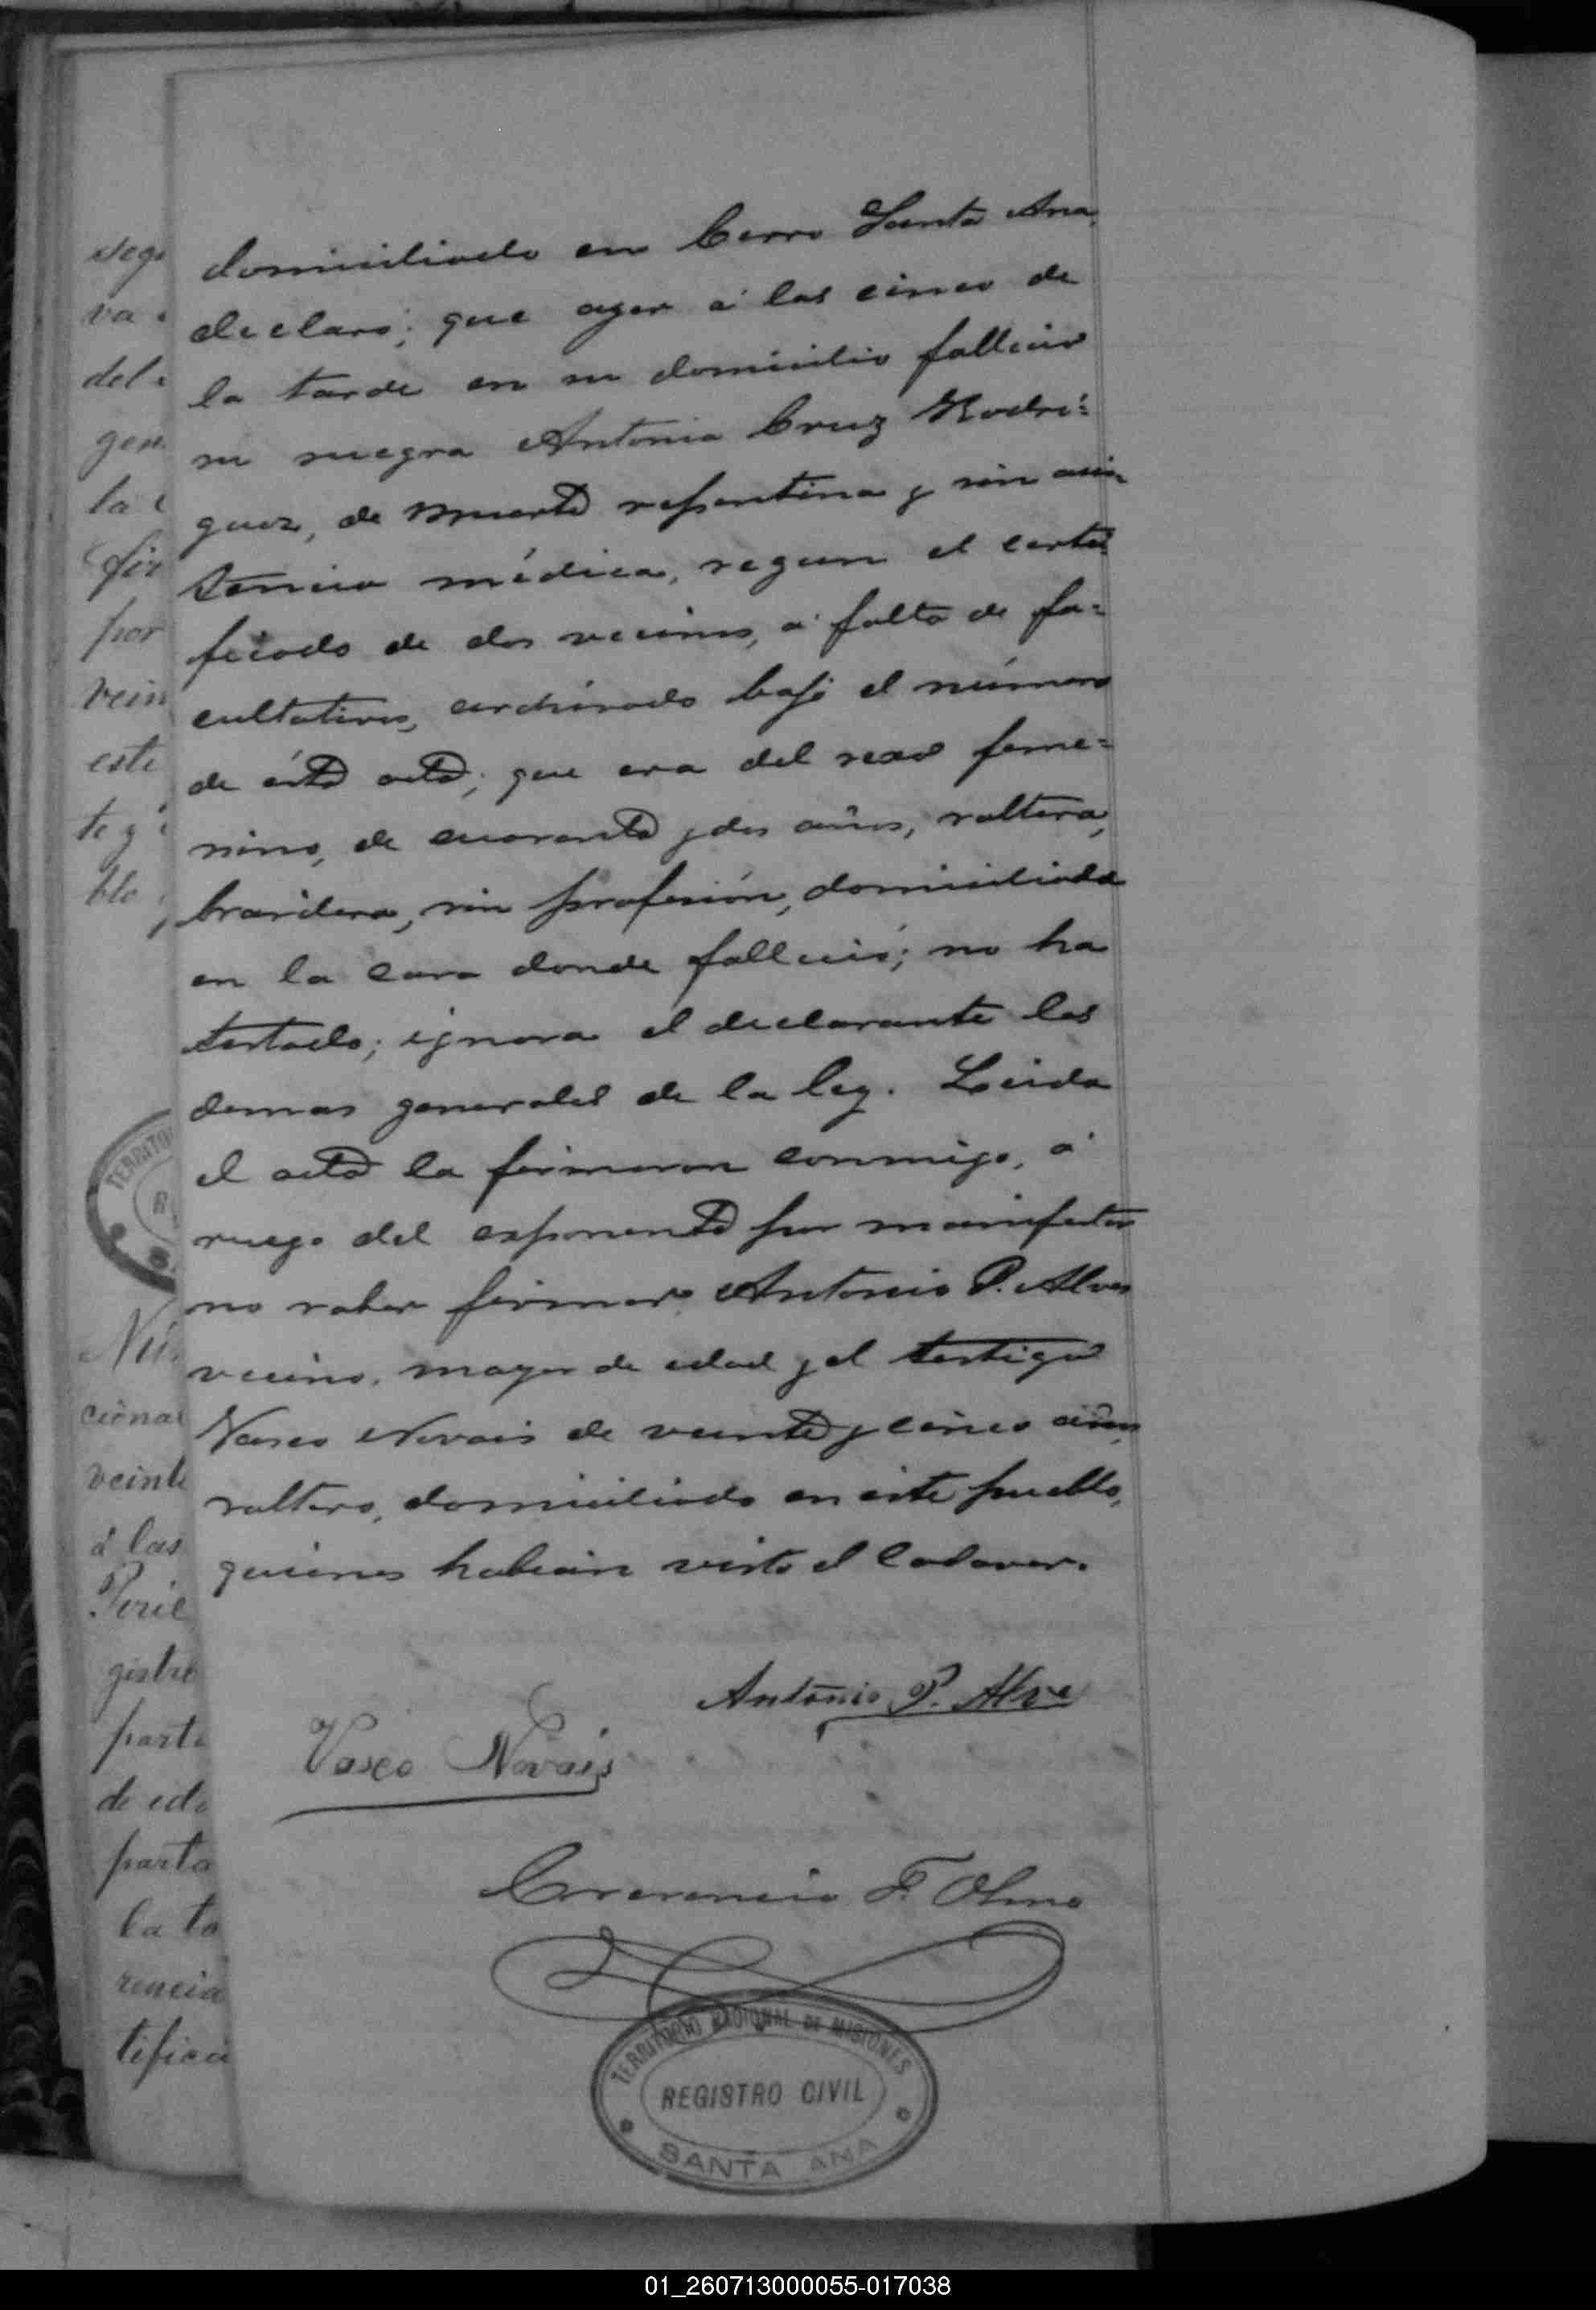 domiciliado en Cerro Santa Ana,
declaro; que ayer á las cinco de
la tarde en su domicilio fallecio
su suegra Antonia Cruz Rodri=
guez, de muerte repentina y sin asis=
tencia médica, segun el certi=
ficado de dos vecinos, á falta de fa=
cultativos, archivado bajo el número
de ésta acta; que era del sexo feme=
nino, de cuarenta y dos años, soltera,
brasilera, sin profesión, domiciliada
en la casa donde falleció; no ha
testado; ignora el declarante las
demas generales de la ley. Leida
el acta la firmaron conmigo, á
ruego del exponente por manifestar
no saber firmar Antonio P. Alves
vecino, mayor de edad y el testigo
Vasco Novais de veinte y cinco años,
soltero, domiciliado en este pueblo,
quienes habian visto el cadaver.
Antonio P. Alve
Vasco Novais
Crecencio F. Olmo
TERRITORIO NACIONAL DE MISIONES
REGISTRO CIVIL
SANTA ANA
va
del
gen
la
fir
por
vein
este
te y
blo
TERRITO
Nú
cional
veinte
á las
gistro
parte
de eda
parta
la ta
rencia
tifica
01_260713000055-017038